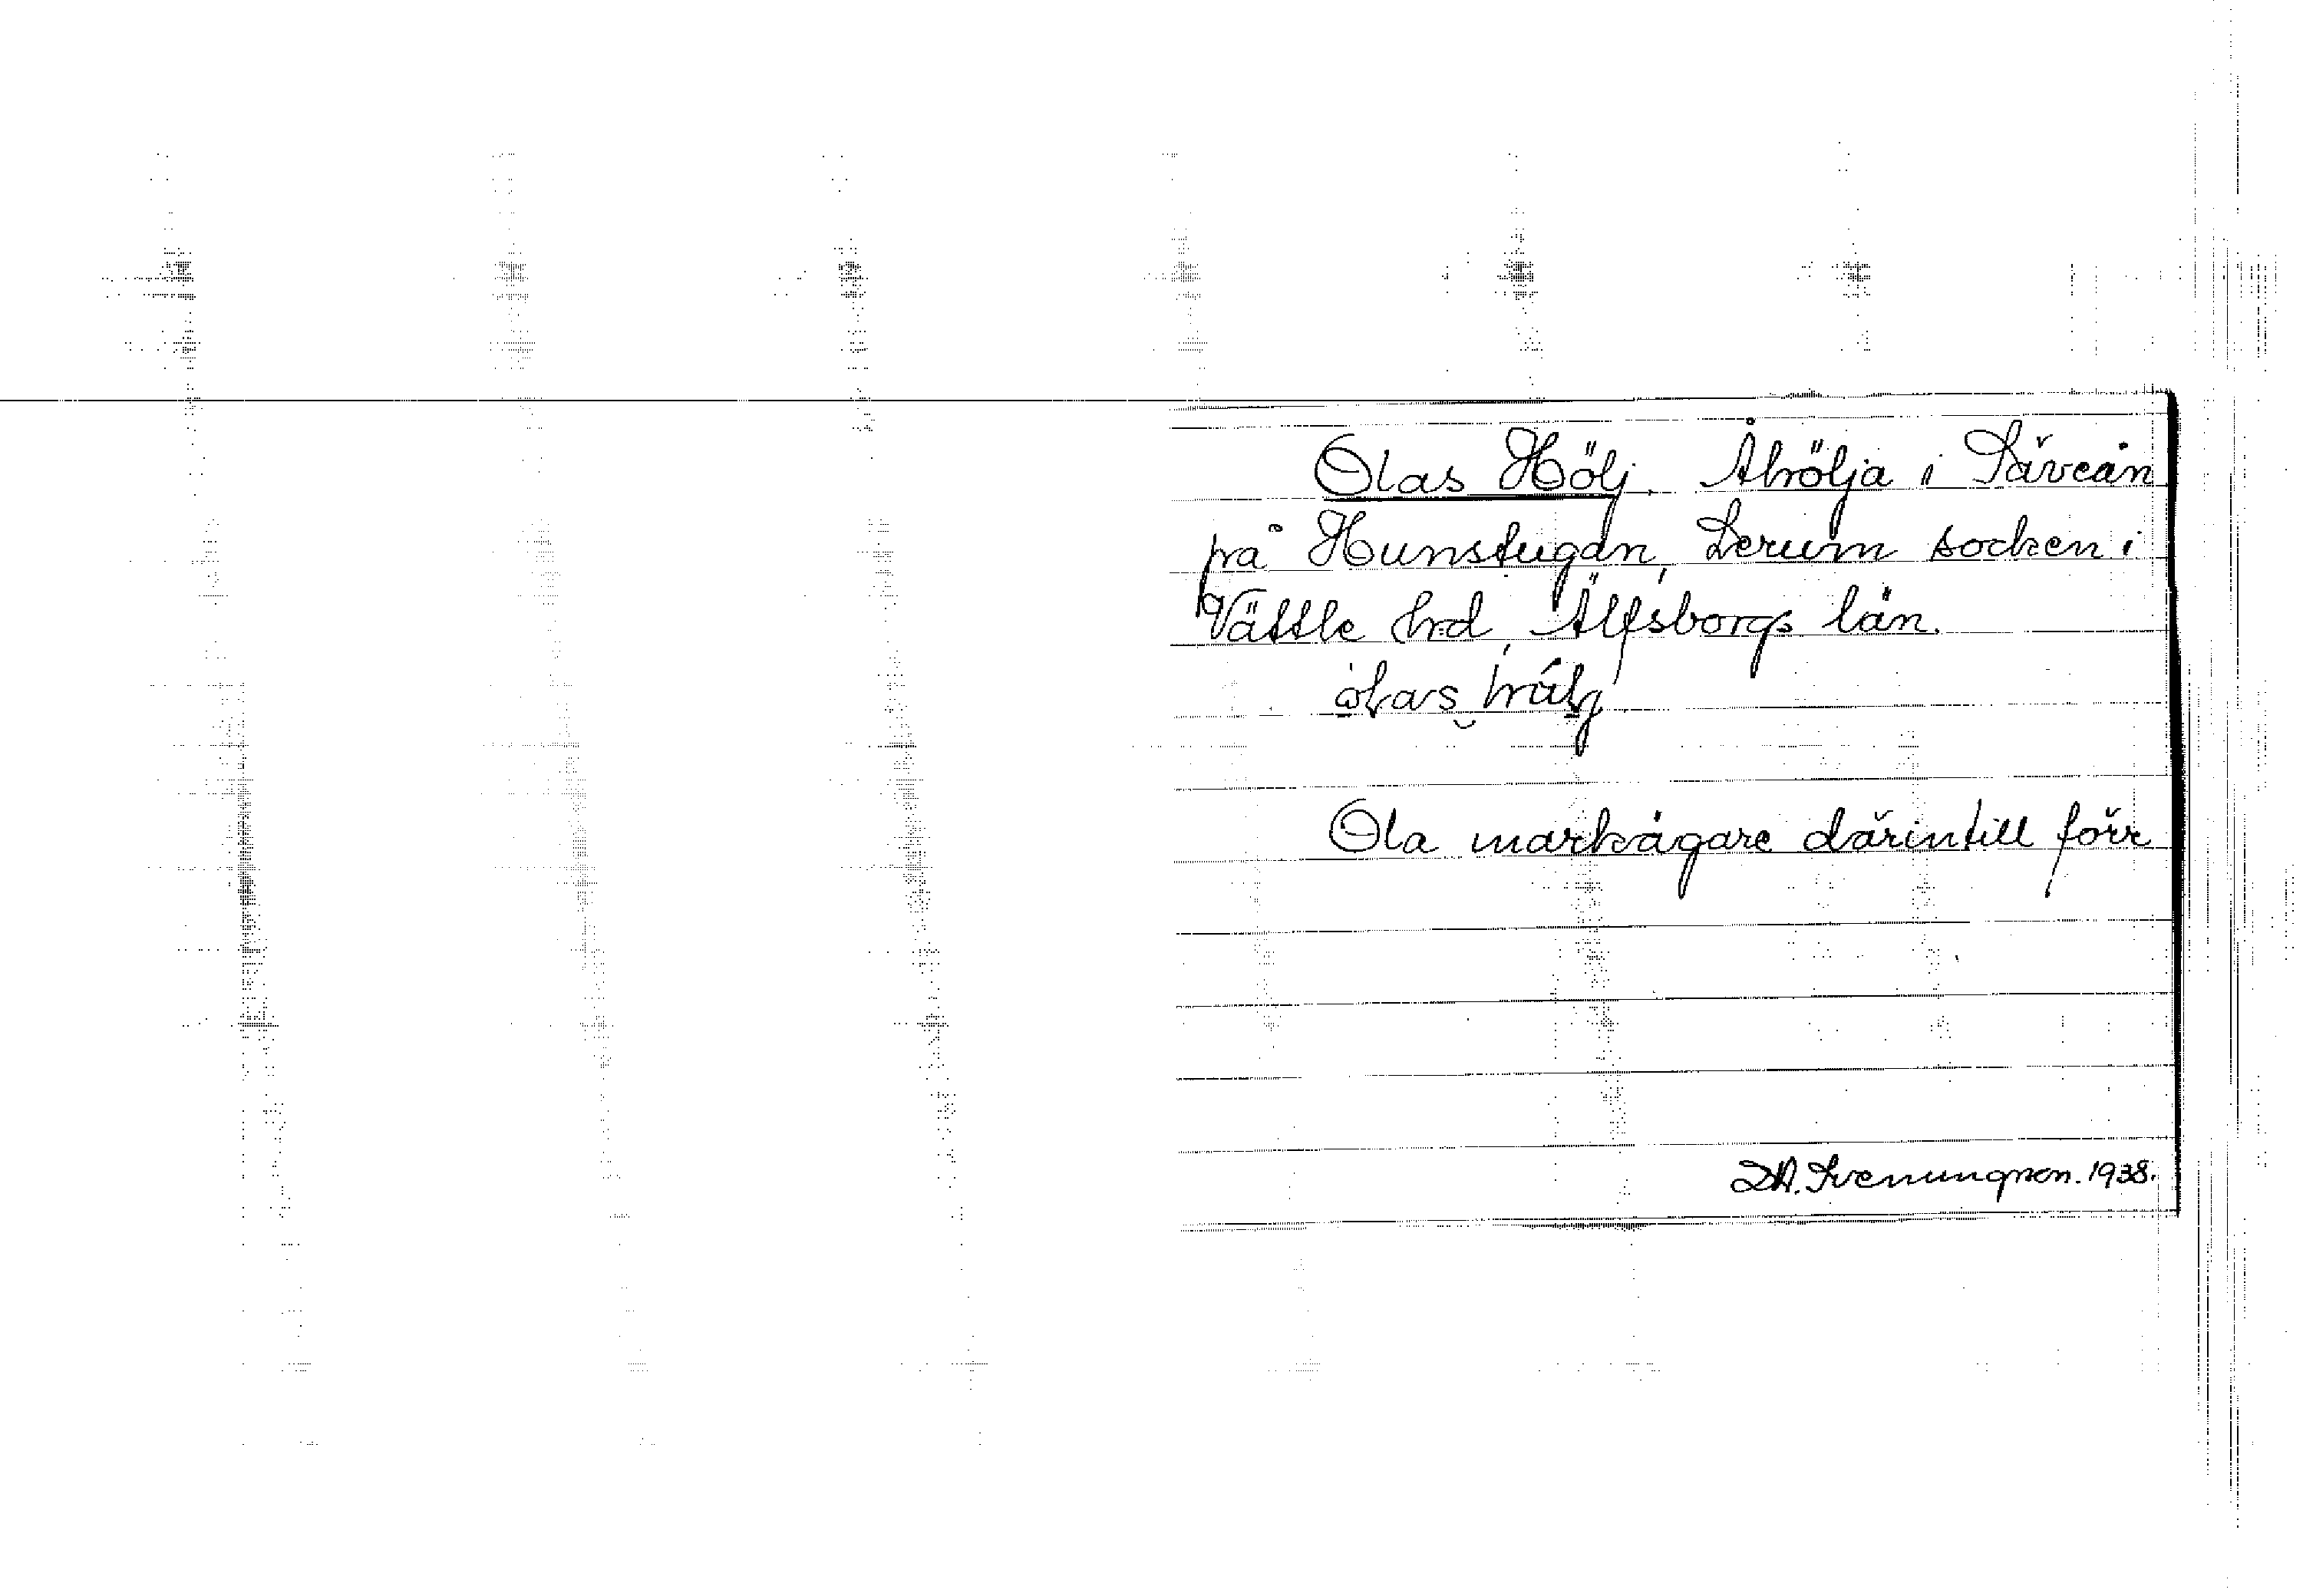 Olas Hölj. Åhölja i Säveån
på Hunstugan, Lerum socken i
Vättle hrd, Älfsborgs län.
Ola markägare därintill förr
D.A. Svenungson. 1938.